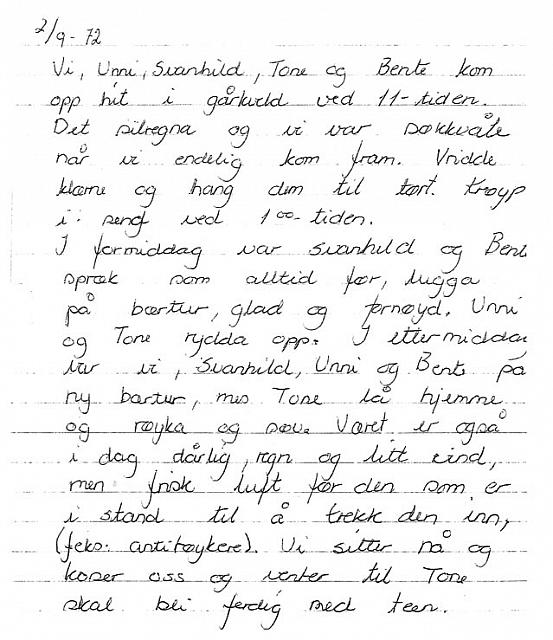 2/9-72
Vi, Unni, Svanhild, Tone og Bente kom
opp hit i gårkveld ved 11-tiden.
Det silregna og vi var søkkvåte
når vi endelig kom fram. Vridde
klærne og hang dem til tørt. Krøyp
i seng ved 1⁰⁰-tiden.
I formiddag var Svanhild og Bent
spræk som alltid før, lugga
på bærtur, glad og fornøyd. Unni
og Tone rydda opp. I ettermiddag
var vi, Svanhild, Unni og Bente på
ny bærtur, mes Tone lå hjemme
og røyka og søv. Været er også
i dag dårlig, regn og litt vind,
men frisk luft før den som er
i stand til å trekk den inn,
(feks: antirøykere). Vi sitter nå og
koser oss og venter til Tone
skal bli ferdig med teen.